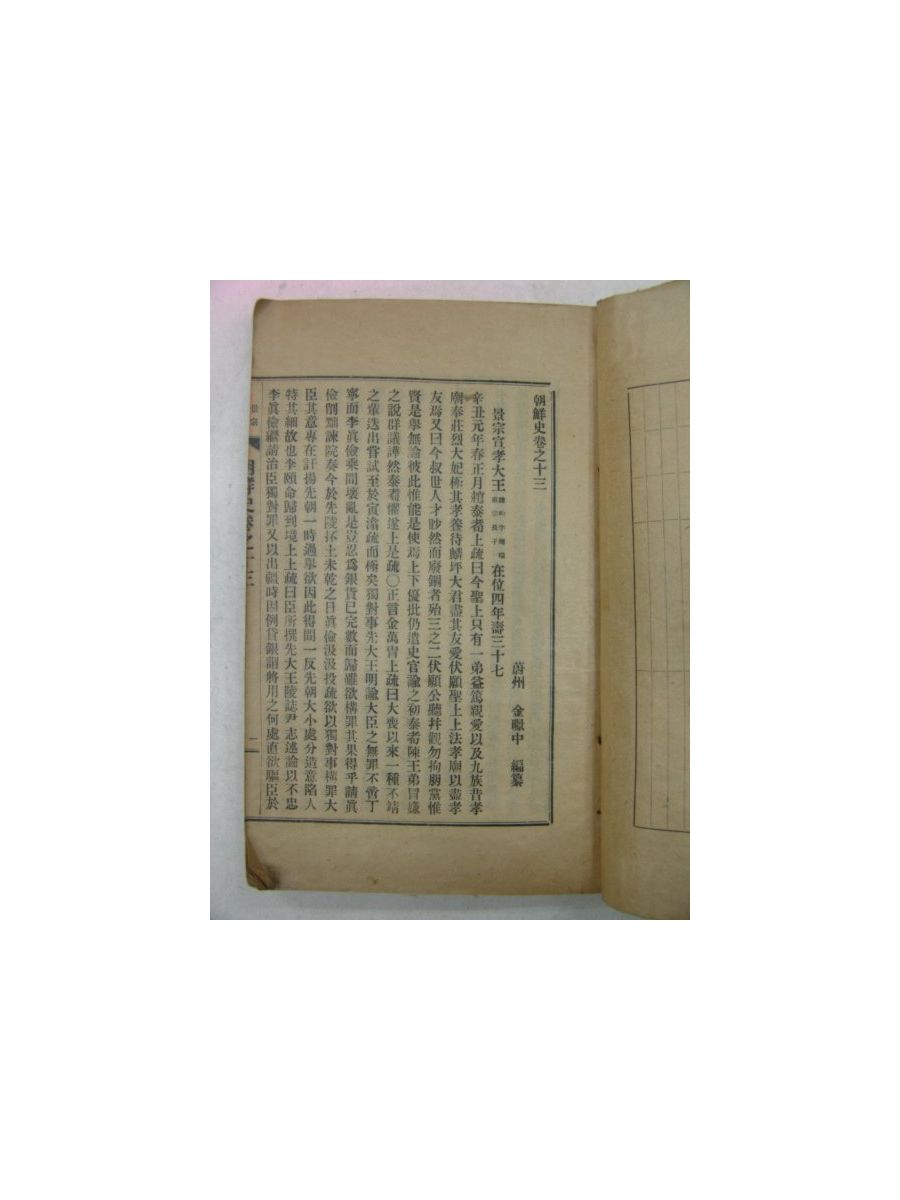 朝鮮史卷之十三
蔚州 金 中 編纂
景宗宣孝大王 在位四年壽三十七
辛丑元年春正月趙泰耉上疏曰今聖上只有一弟益篤親愛以及九族昔孝
廟奉莊烈大妃極其孝養待麟坪大君盡其友愛伏願聖上上法孝廟以盡孝
友焉又曰今叔世人才眇然而廢錮者殆三之二伏願公聽幷觀勿拘朋黨惟
賢是舉無論彼此惟能是使焉上下優批仍遣史官諭之初泰耉陳王弟冒嫌
之說群議譁然泰耉懼遂上是疏〇正言金萬冑上疏曰大喪以來一種不靖
之輩迭出嘗試至於寅渝疏而極矣獨對事先大王明諭大臣之無罪不啻丁
寧而李眞儉乘間壞亂是豈忍爲銀貨已完數而歸雖欲構罪其果得乎請眞
儉削黜諫院奏今於先陵抔土未乾之日眞儉汲汲投疏欲以獨對事構罪大
臣其意專在訐揚先朝一時過擧欲因此得間一反先朝大小處分造意陷人
特其細故也李頤命歸到境上上疏曰臣所撰先大王陵誌尹志述論以不忠
李眞儉繼請治臣獨對罪又以出疆時因例貸銀謂將用之何處直欲驅臣於
景宗
朝鮮史卷之十三